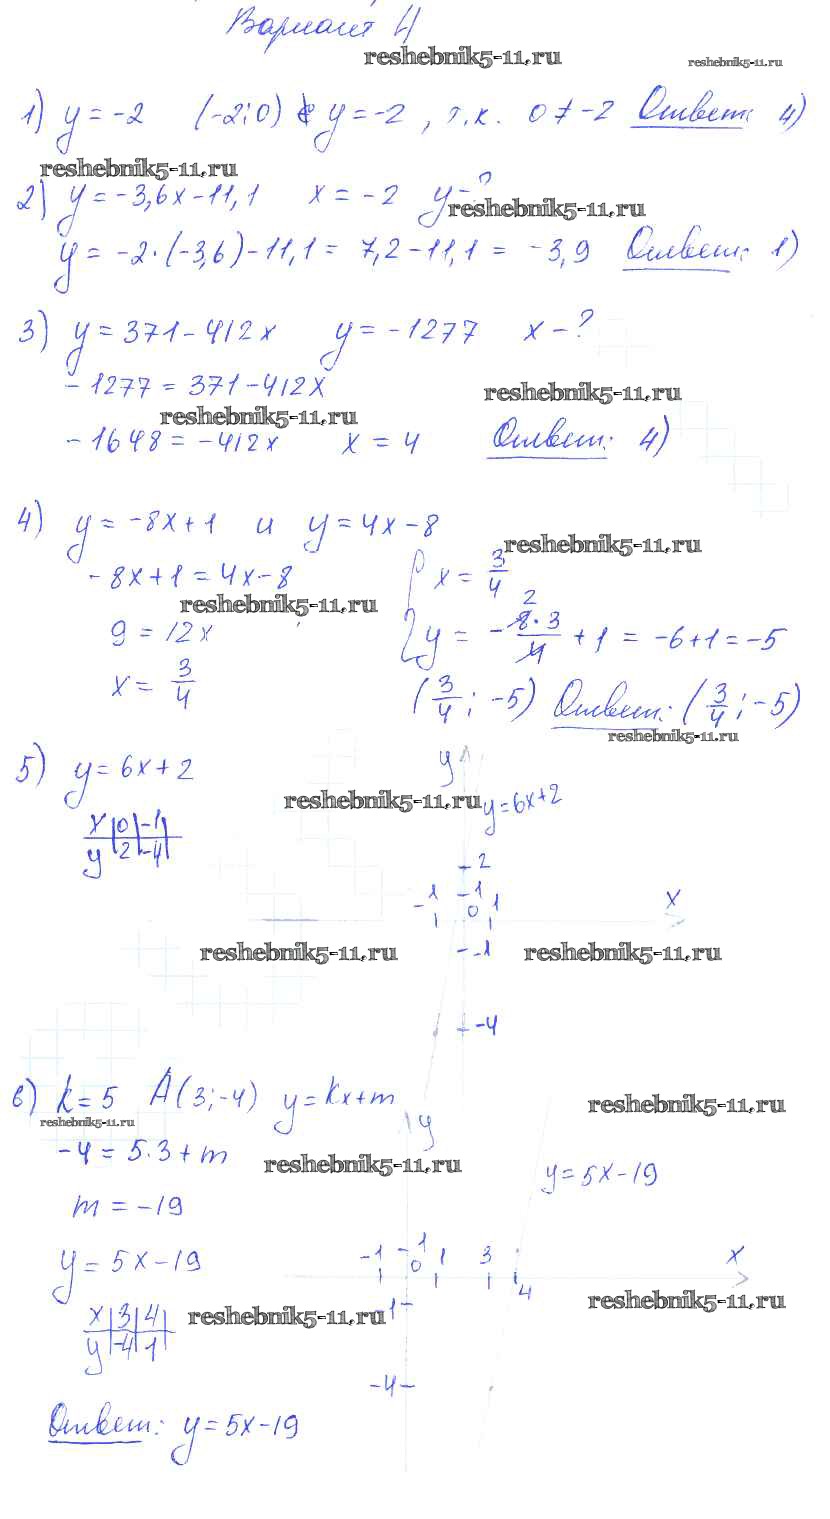 Вариант 4
reshebnik5-11.ru
reshebnik5-11.ru
1) y = -2 (-2; 0) ∉ y = -2, т.к. 0 ≠ -2 Ответ: 4)
reshebnik5-11.ru
2) y = -3,6x - 11,1 x = -2 y - ?
reshebnik5-11.ru
y = -2·(-3,6) - 11,1 = 7,2 - 11,1 = -3,9 Ответ: 1)
3) y = 371 - 412x y = -1277 x - ?
-1277 = 371 - 412x
reshebnik5-11.ru
reshebnik5-11.ru
-1648 = -412x x = 4 Ответ: 4)
4) y = -8x + 1 и y = 4x - 8
reshebnik5-11.ru
-8x + 1 = 4x - 8 { x = 3/4
reshebnik5-11.ru
9 = 12x y = -8·3/4 + 1 = -6 + 1 = -5
2
x = 3/4 (3/4; -5) Ответ: (3/4; -5)
reshebnik5-11.ru
5) y = 6x + 2
y
reshebnik5-11.ru
y = 6x + 2
x | 0 | -1 |
y | 2 | -4 |
2
-1 1 0 1 x
reshebnik5-11.ru
-1
reshebnik5-11.ru
-4
6) k = 5 A(3; -4) y = kx + m
reshebnik5-11.ru
reshebnik5-11.ru
y
-4 = 5·3 + m
reshebnik5-11.ru
y = 5x - 19
m = -19
y = 5x - 19
-1 1 0 1 3 4 x
reshebnik5-11.ru
x | 3 | 4
y | -4 | 1
reshebnik5-11.ru
-1
-4
Ответ: y = 5x - 19